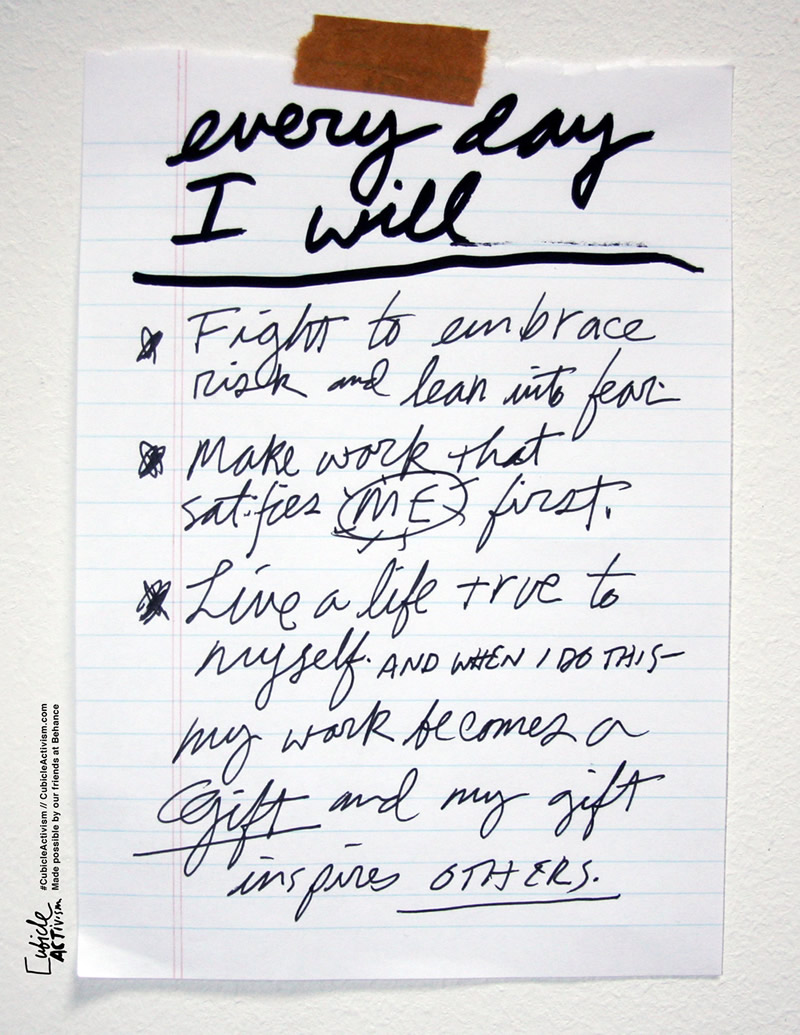 every day
I will
Fight to embrace
risk and lean into fear.
Make work that
satisfies ME first.
Live a life true to
myself. AND WHEN I DO THIS—
my work becomes a
Gift and my gift
inspires OTHERS.
#CubicleActivism // CubicleActivism.com
Made possible by our friends at Behance
Cubicle
ACTivism